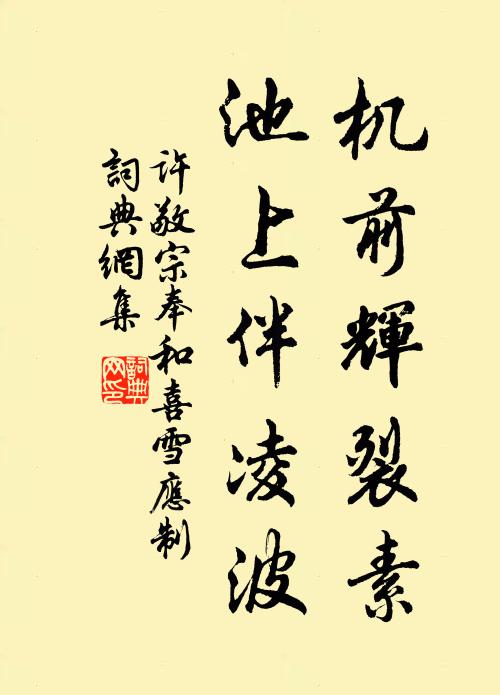 机前輝裂素
池上伴凌波
許敬宗奉和喜雪應制
詞典網集
詞典網印